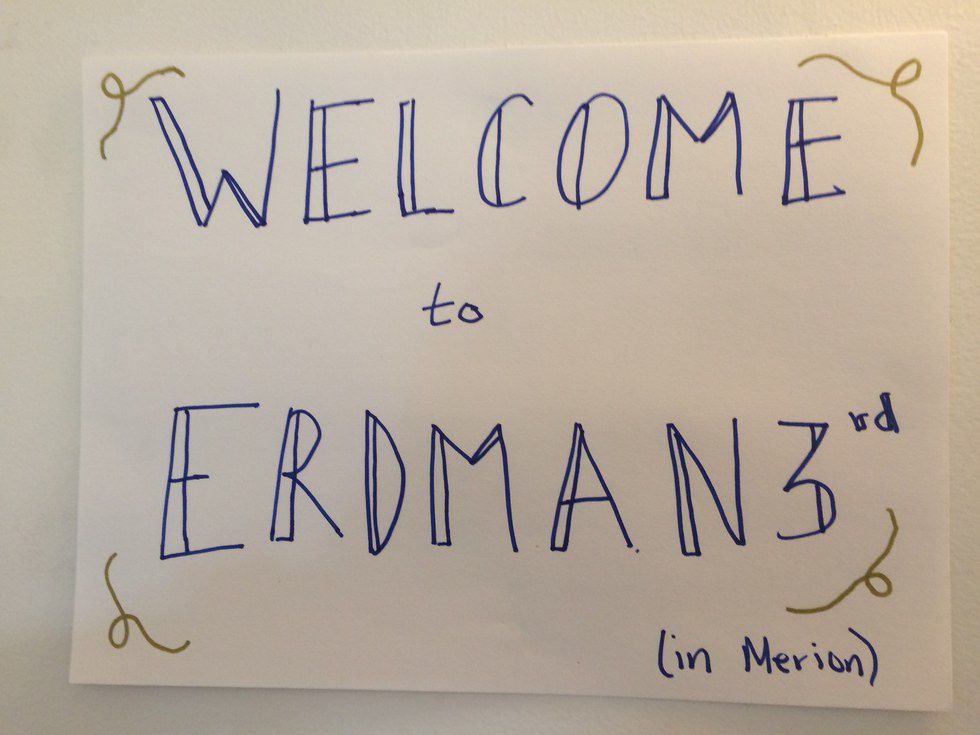 WELCOME
to
ERDMAN 3rd
(in Merion)